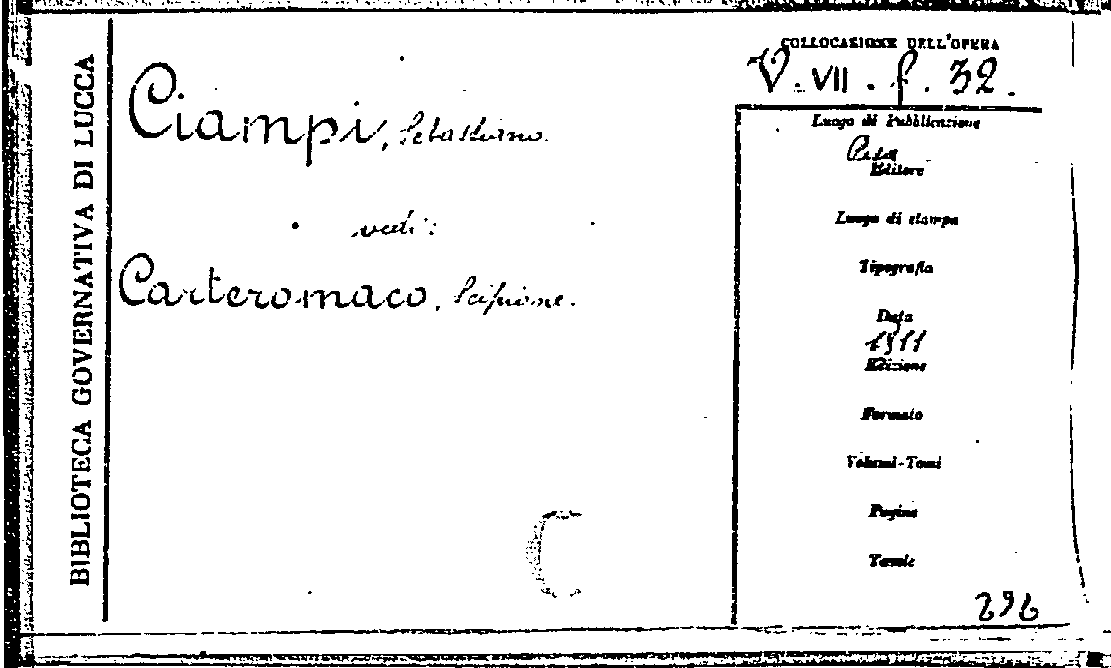 BIBLIOTECA GOVERNATIVA DI LUCCA
Ciampi, Sebastiano.
vedi:
Carteromaco, Scipione.
C
COLLOCAZIONE DELL'OPERA
V. VII. f. 32.
Luogo di Pubblicazione
Pisa
Editore
Luogo di stampa
Tipografia
Data
1811
Edizione
Formato
Volumi-Tomi
Pagine
Tavole
296